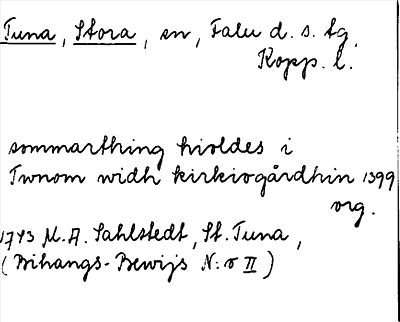 Tuna, Stora, sn, Falu d. s. tg.
Kopp. l.
sommarthing hioldes i
Twnom widh kirkiogårdhin 1399
org.
1743 M. A. Sahlstedt, St. Tuna,
(Bihangs-Bewijs N:o II)